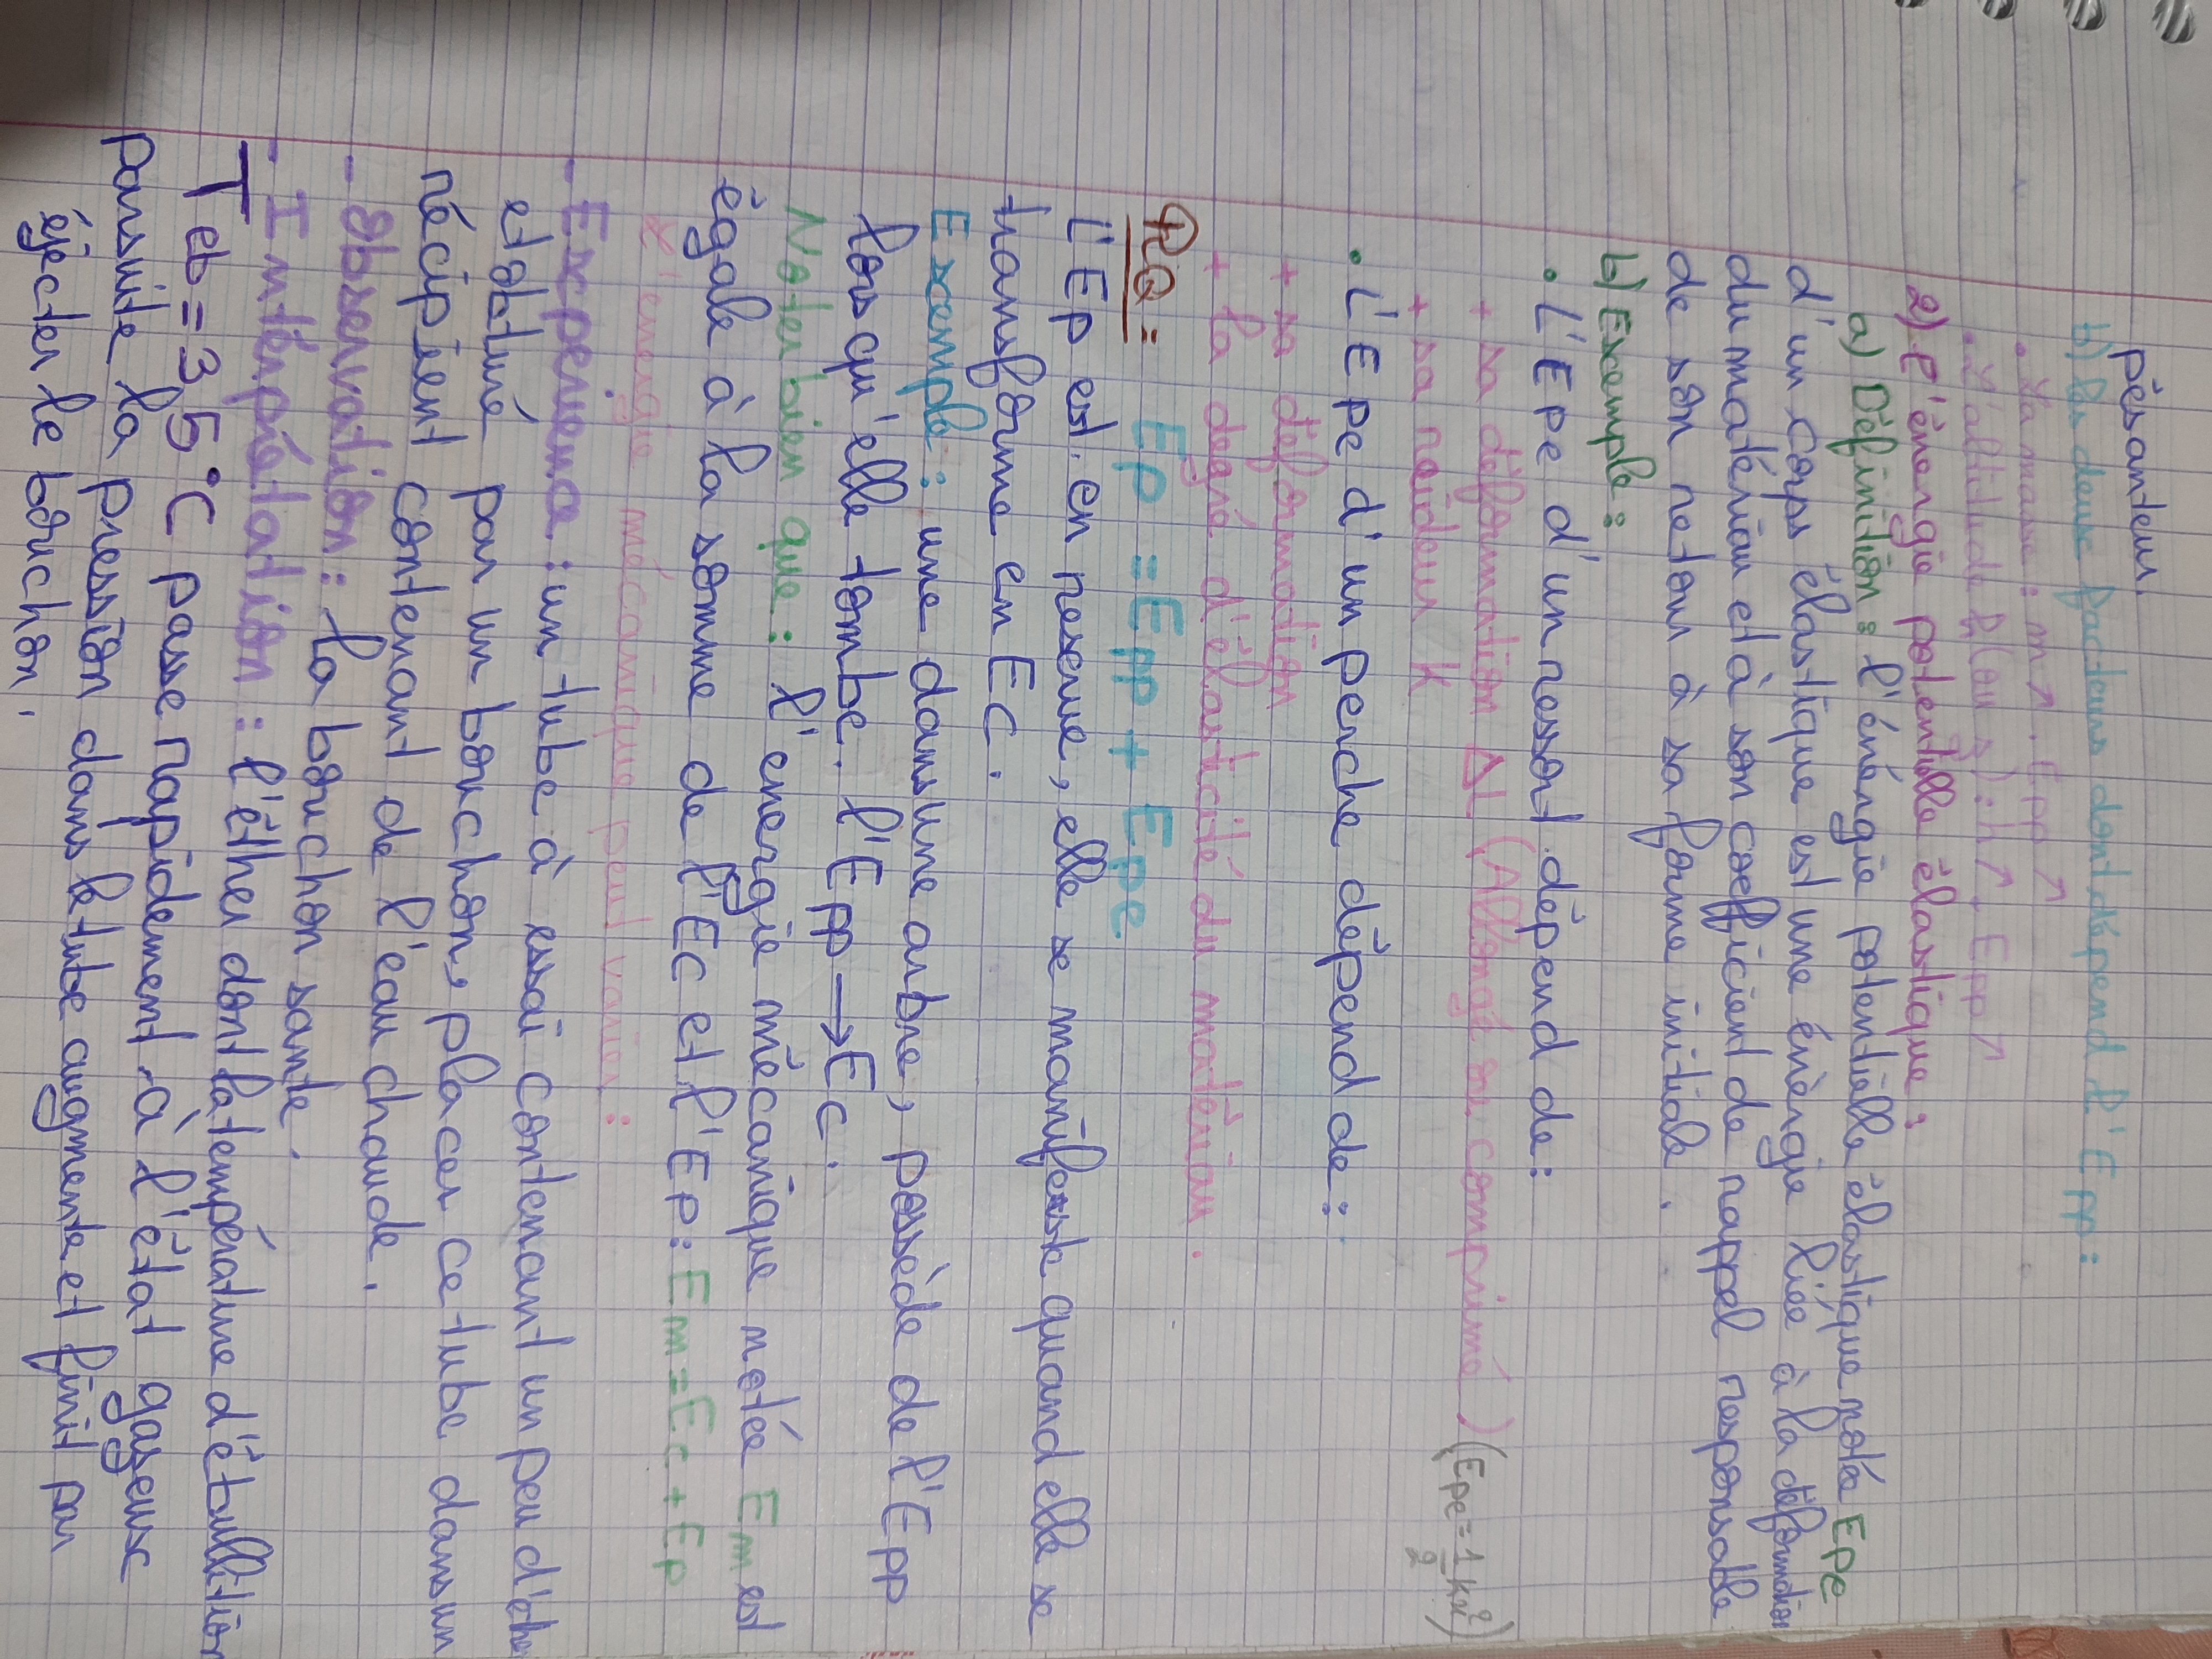 pèsanteur.
b) les deux facteurs dont dépend l'Epp :
. La masse : m↗. Epp↗
. L'altitude h (ou z) : h↗. Epp↗
2) l'énergie potentielle élastique :
a) Définition : l'énergie potentielle élastique notée Epe
d'un corps élastique est une énergie liée à la déformation
du matériau et à son coefficient de rappel responsable
de son retour à sa forme initiale.
b) Exemple :
. L'Epe d'un ressort dépend de :
+ sa déformation ΔL (Allongé ou comprimé) (Epe = 1/2 kx²)
+ sa raideur K
. L'Epe d'un perche dépend de :
+ sa déformation
+ la degré d'élasticité du matériau.
RQ : Ep = Epp + Epe.
L'Ep est en reserve, elle se manifeste quand elle se
transforme en Ec.
Exemple : une dans une arbre, possède de l'Epp
lors qu'elle tombe. l'Epp → Ec.
Noter bien que : l'energie mécanique notée Em est
égale à la somme de l'Ec et l'Ep : Em = Ec + Ep
L'energie mécanique peut varier :
- Experience : un tube à essai contenant un peu d'éther
et obturé par un bouchon, placer ce tube dans un
récipient contenant de l'eau chaude.
- Observation : la bouchon sante.
- Intérprétation : l'éther dont la température d'ébullition
Teb = 35°C passe rapidement à l'état gaseux
parsuite la pression dans le tube augmente et finit par
éjecter le bouchon.